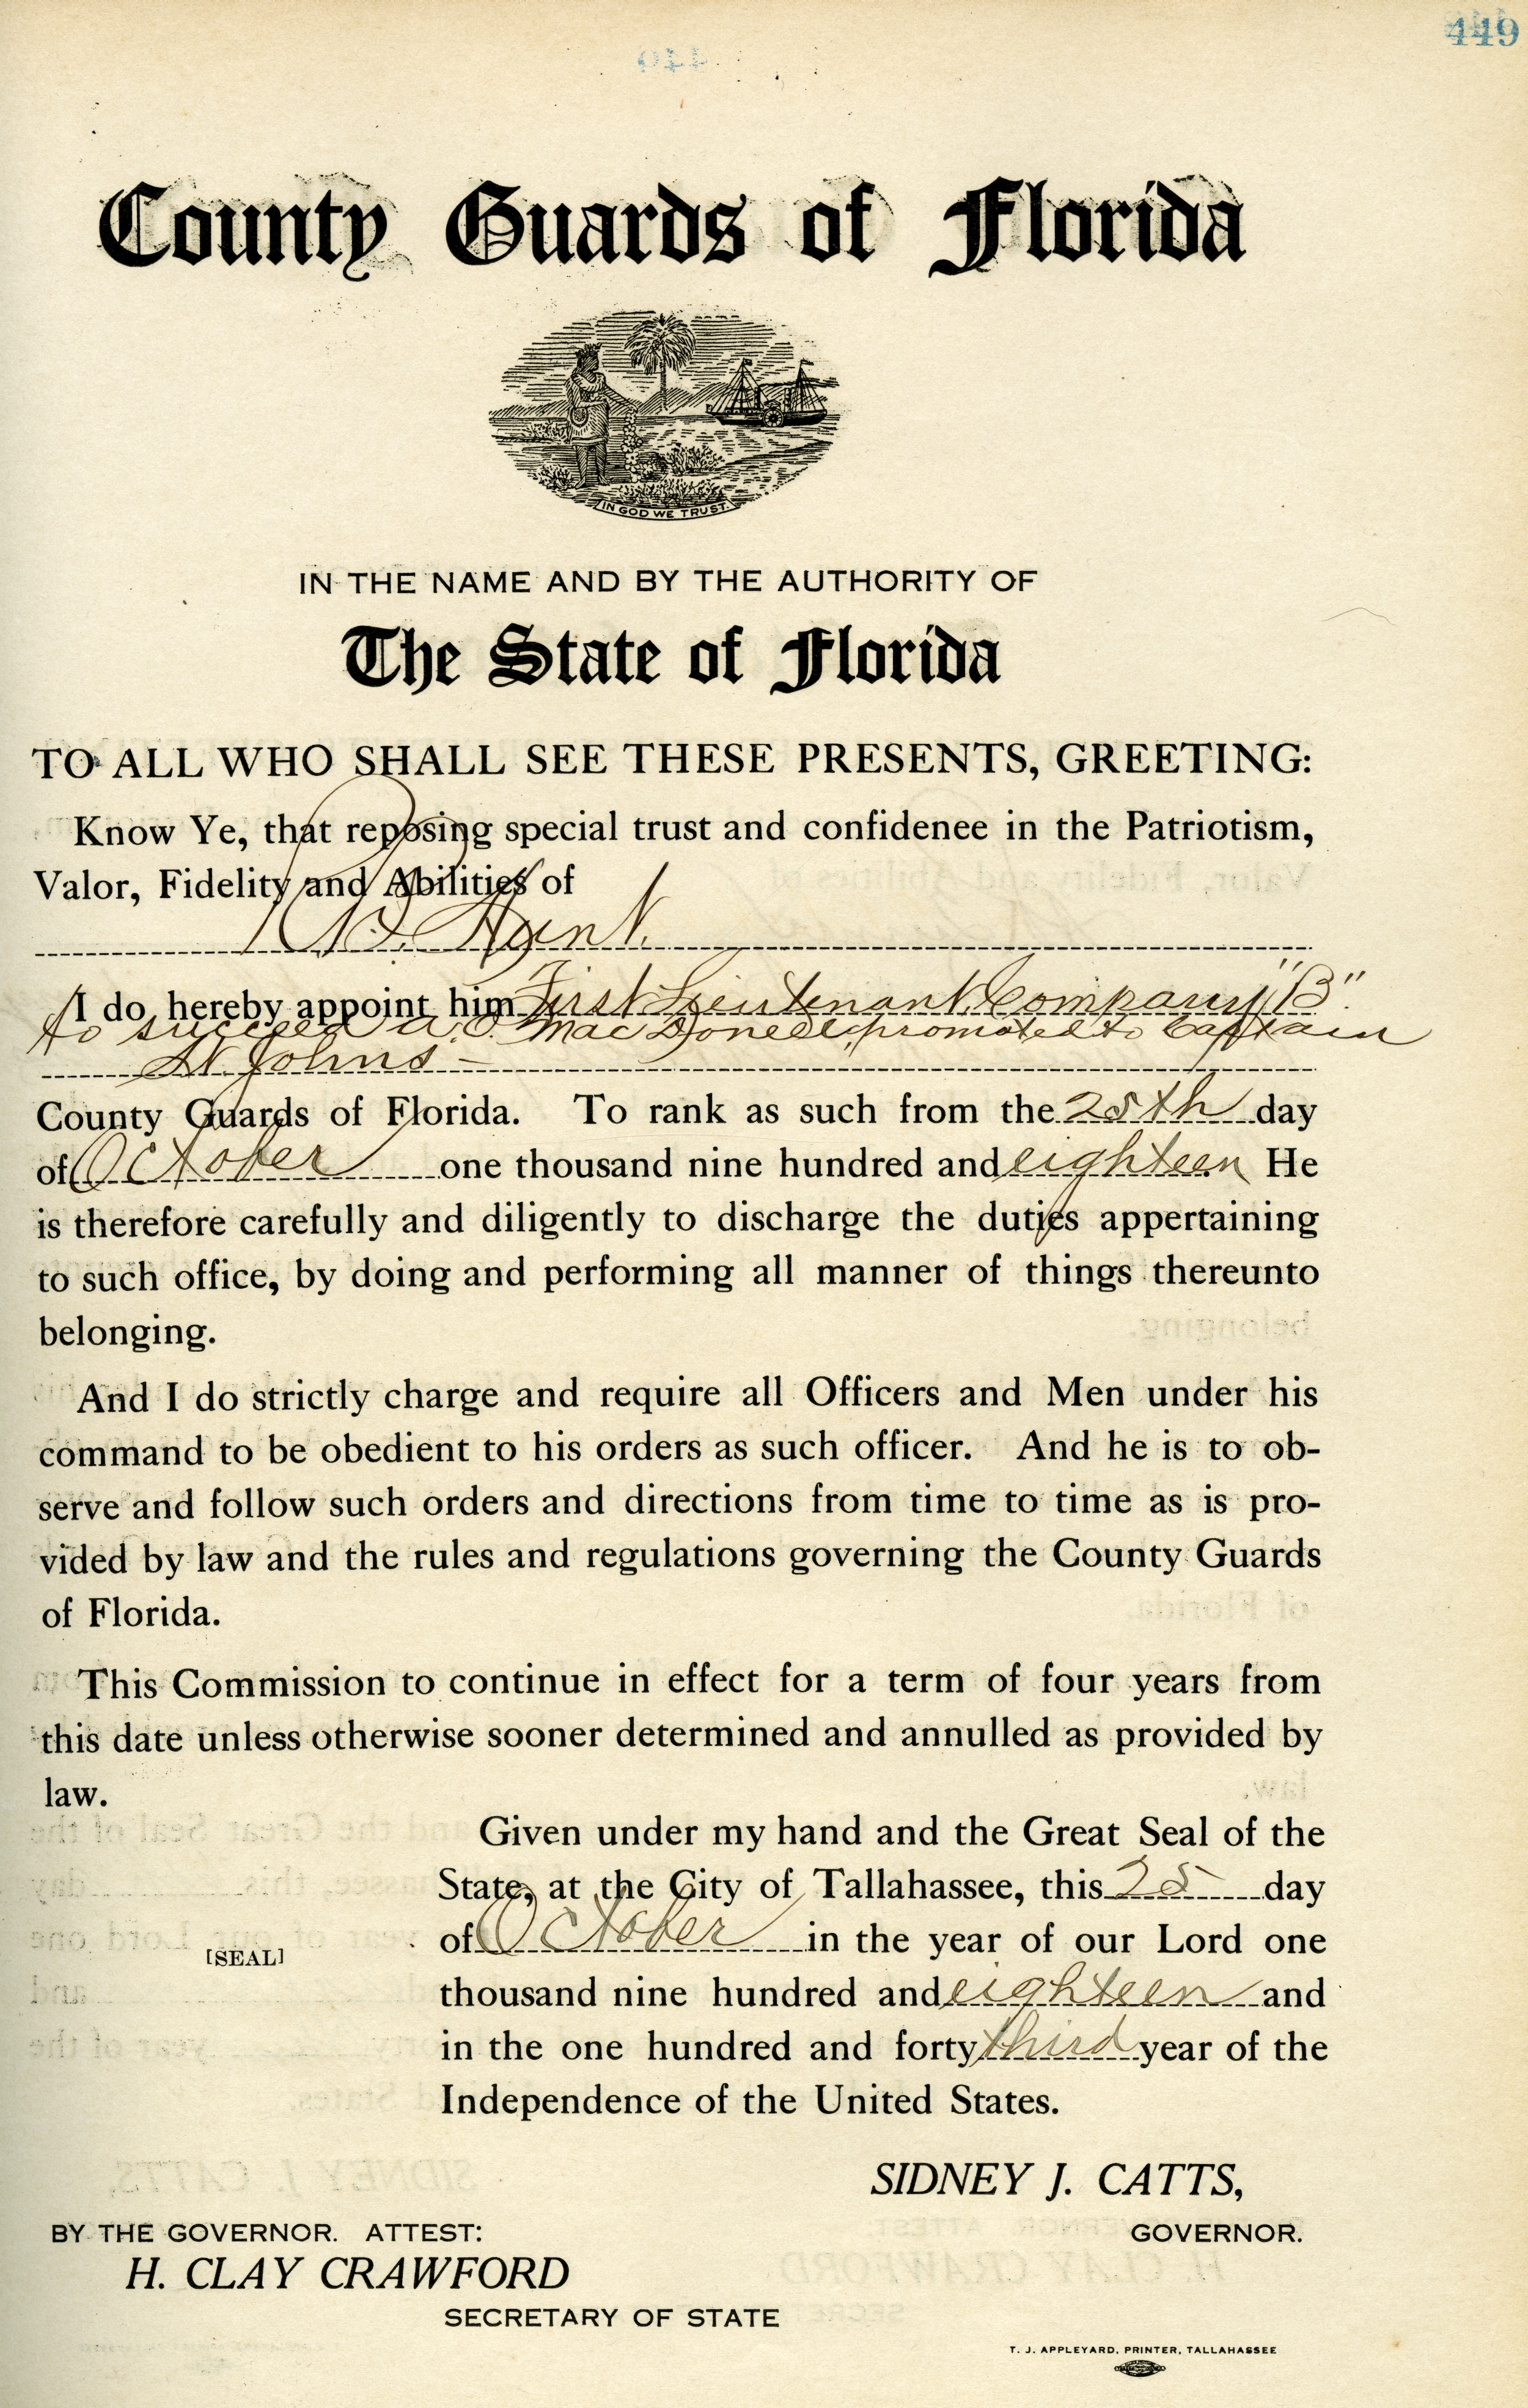 449
County Guards of Florida
IN GOD WE TRUST.
IN THE NAME AND BY THE AUTHORITY OF
The State of Florida
TO ALL WHO SHALL SEE THESE PRESENTS, GREETING:
Know Ye, that reposing special trust and confidenee in the Patriotism,
Valor, Fidelity and Abilities of
Hunt.
I do hereby appoint him First Lieutenant, Company "B".
to succeed A. C. MacDonell, promoted to Captain
St. Johns
County Guards of Florida. To rank as such from the 25th day
of October one thousand nine hundred and eighteen He
is therefore carefully and diligently to discharge the duties appertaining
to such office, by doing and performing all manner of things thereunto
belonging.
And I do strictly charge and require all Officers and Men under his
command to be obedient to his orders as such officer. And he is to ob-
serve and follow such orders and directions from time to time as is pro-
vided by law and the rules and regulations governing the County Guards
of Florida.
This Commission to continue in effect for a term of four years from
this date unless otherwise sooner determined and annulled as provided by
law.
Given under my hand and the Great Seal of the
State, at the City of Tallahassee, this 25 day
of October in the year of our Lord one
[SEAL]
thousand nine hundred and eighteen and
in the one hundred and forty third year of the
Independence of the United States.
SIDNEY J. CATTS,
BY THE GOVERNOR. ATTEST: GOVERNOR.
H. CLAY CRAWFORD
SECRETARY OF STATE
T. J. APPLEYARD, PRINTER, TALLAHASSEE